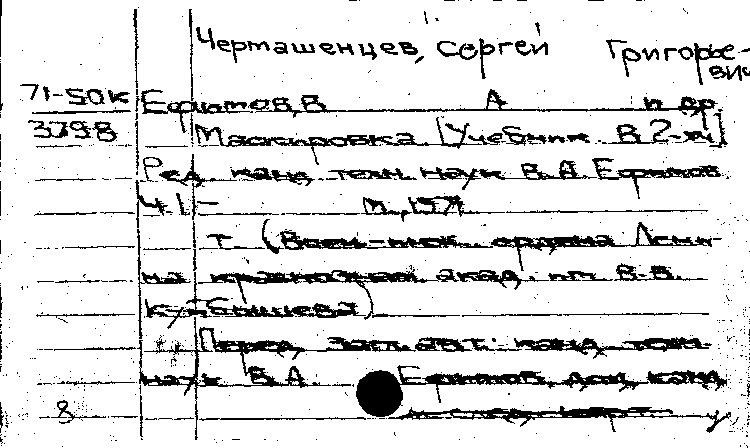 Черташенцев, Сергей Григорье-
вич
71-50к Ефимов, В А и др.
3798 Маскировка. [Учебник. В 2-х ч]
Ред. канд. техн. наук В. А. Ефимов
Ч 1- М., 1971
т. (Воен-инж. ордена Лени-
на краснознам. акад. им В.В.
Куйбышева)
Перед. загл. авт.: канд. техн.
наук В.А. Ефимов, доц. канд.
8